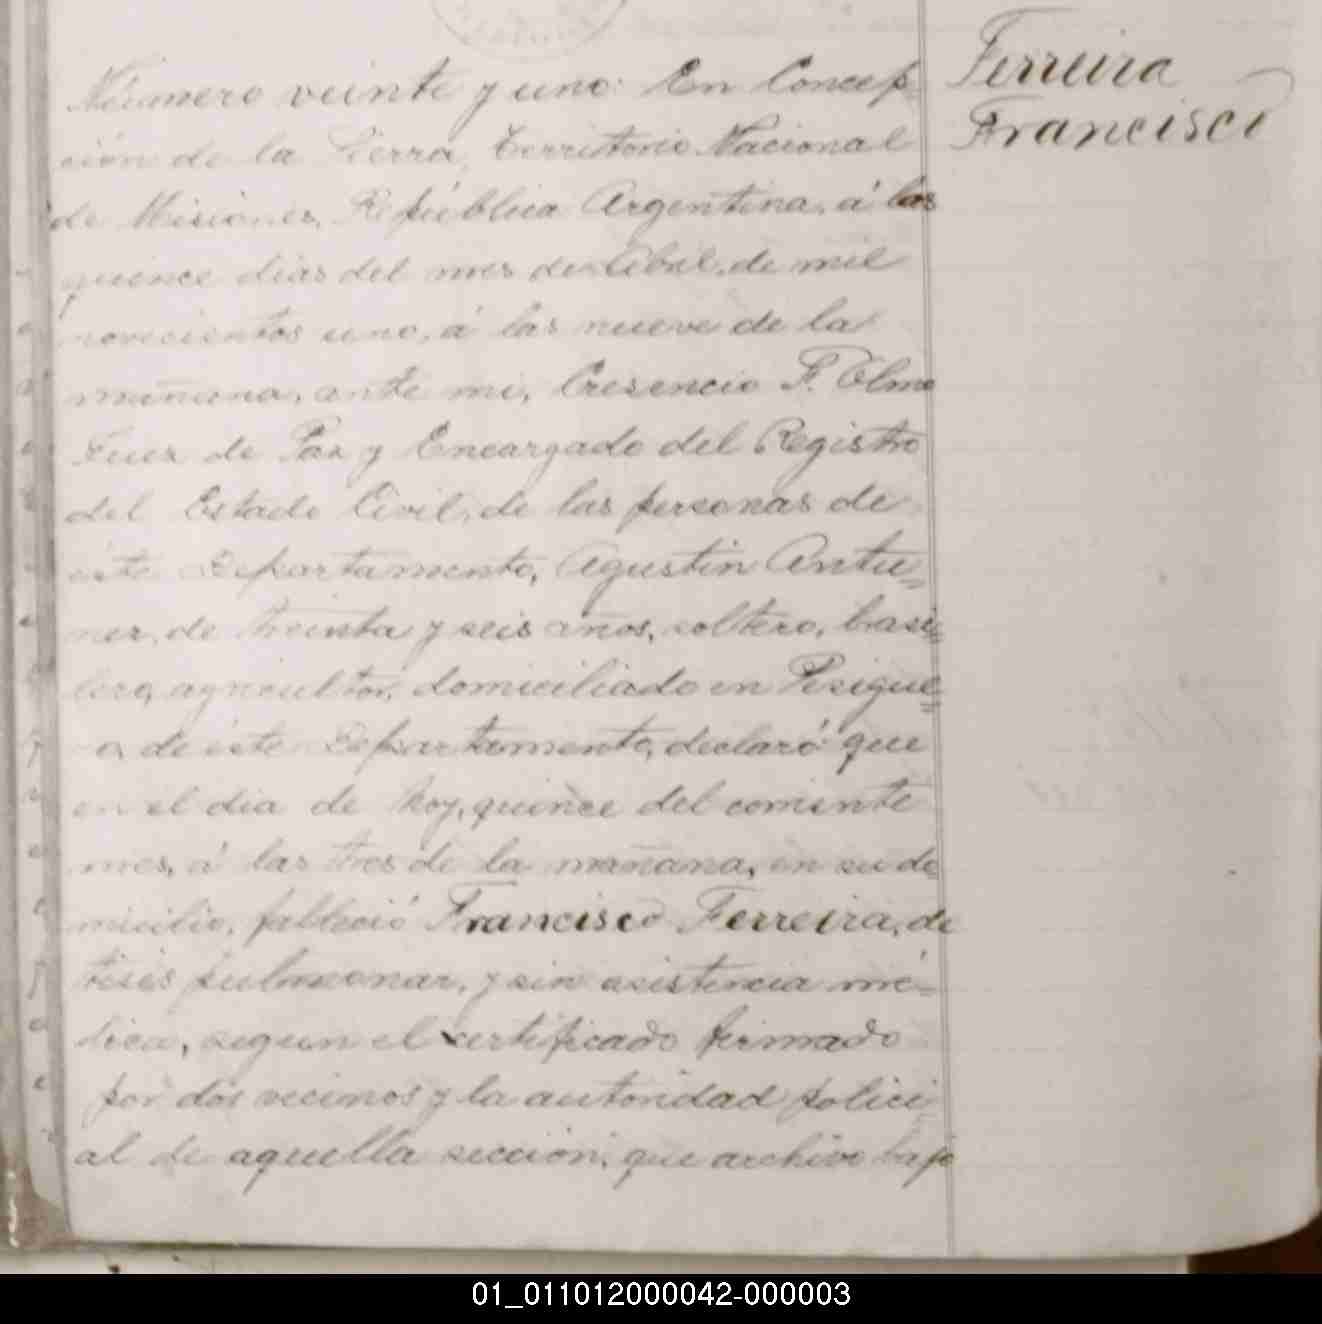 Ferreira
Francisco
Número veinte y uno: En Concep-
ción de la Sierra, Territorio Nacional
de Misiones, República Argentina, á los
quince dias del mes de Abril, de mil
novecientos uno, á las nueve de la
mañana, ante mi, Cresencio F. Olmo
Juez de Paz y Encargado del Registro
del Estado Civil, de las personas de
este Departamento, Agustin Antu=
nez, de treinta y seis años, soltero, brasi=
lero, agricultor, domiciliado en Persigue=
o, de este Departamento, declaró que
en el dia de hoy, quince del corriente
mes, á las tres de la mañana, en su do
micilio, falleció Francisco Ferreira, de
tisis pulmonar, y sin asistencia mé=
dica, segun el certificado firmado
por dos vecinos y la autoridad polici
al de aquella sección, que archivo bajo
01_011012000042-000003